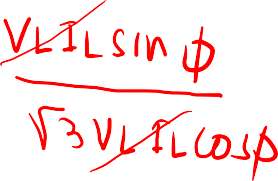 VLIL sin ϕ
√3 VLIL cosϕ